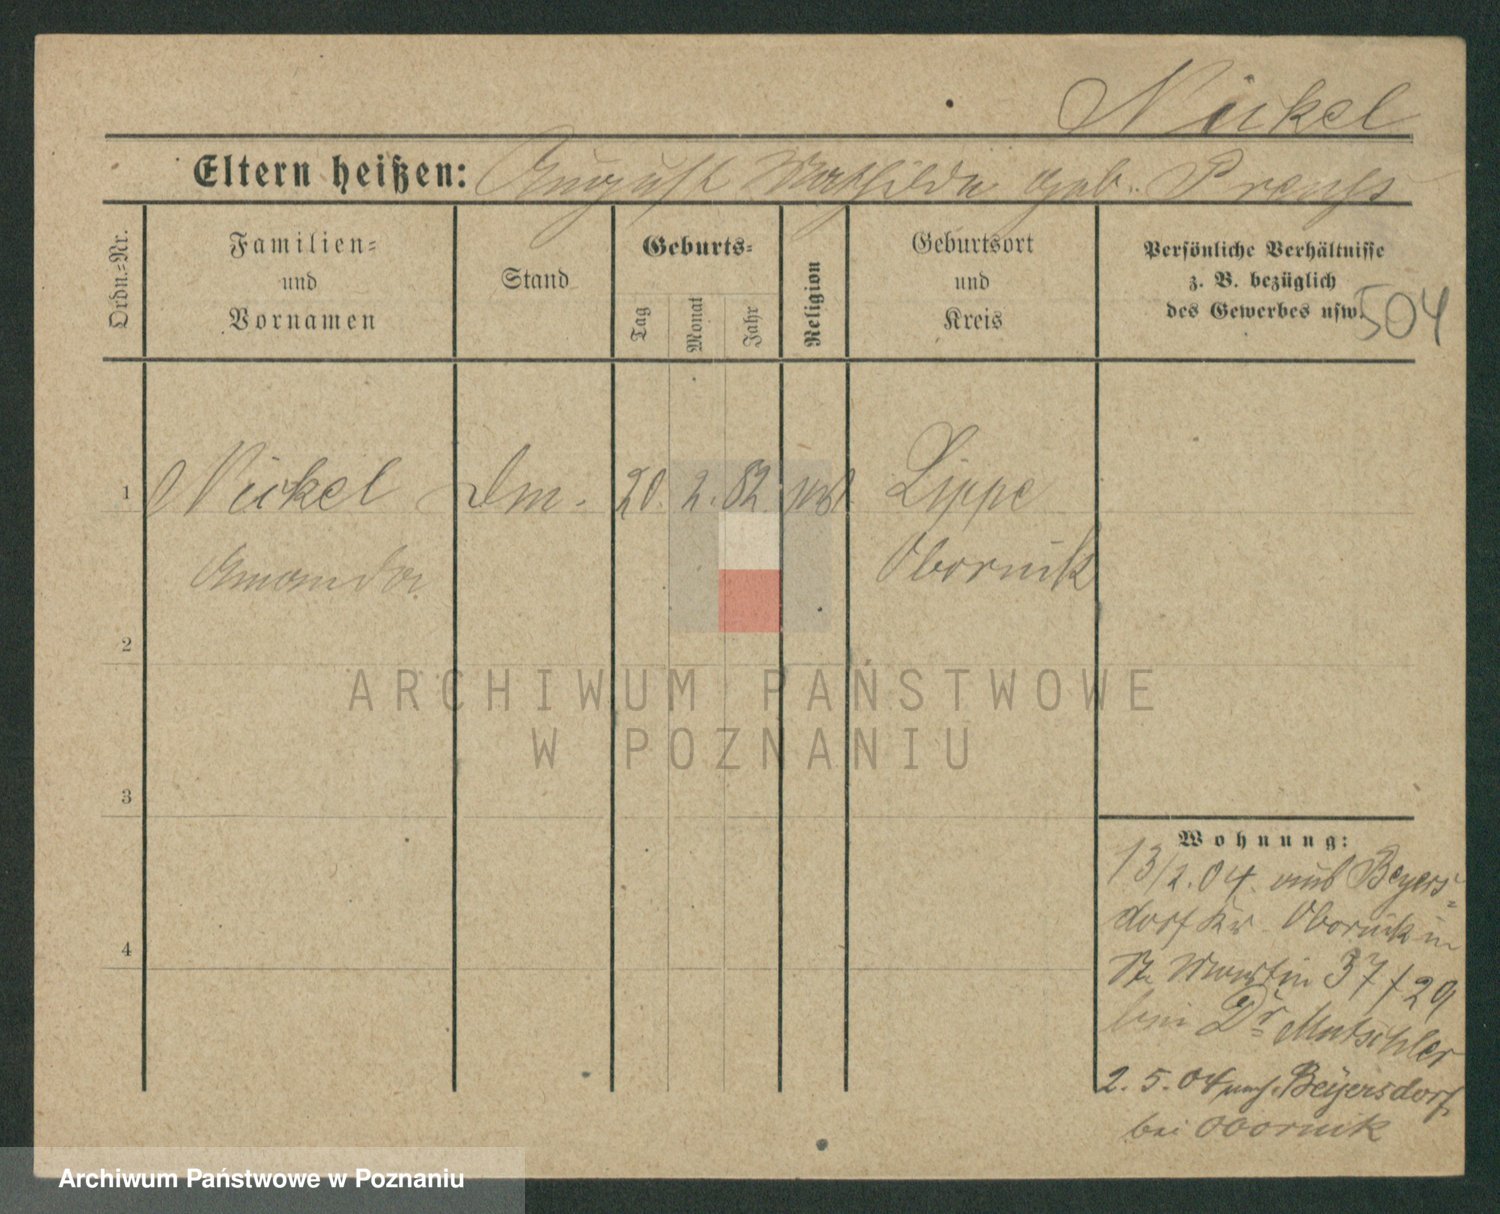 Nickel
Eltern heißen: August Mathilde geb. Preuß
Ordn.-Nr.
Familien-
und
Vornamen
Stand
Geburts-
Tag
Monat
Jahr
Religion
Geburtsort
und
Kreis
Persönliche Verhältnisse
z. B. bezüglich
des Gewerbes usw.
504
1 Nickel Dm. 20. 2. 82. Lippe
Amanda Obornik
2
3
4
ARCHIWUM PAŃSTWOWE
W POZNANIU
Wohnung:
13/2.04. aus Beyers-
dorf Kr. Obornik in
St. Martin 37/29
bei Dr. Mutschler
2. 5. 04 nach Beyersdorf
bei Obornik
Archiwum Państwowe w Poznaniu